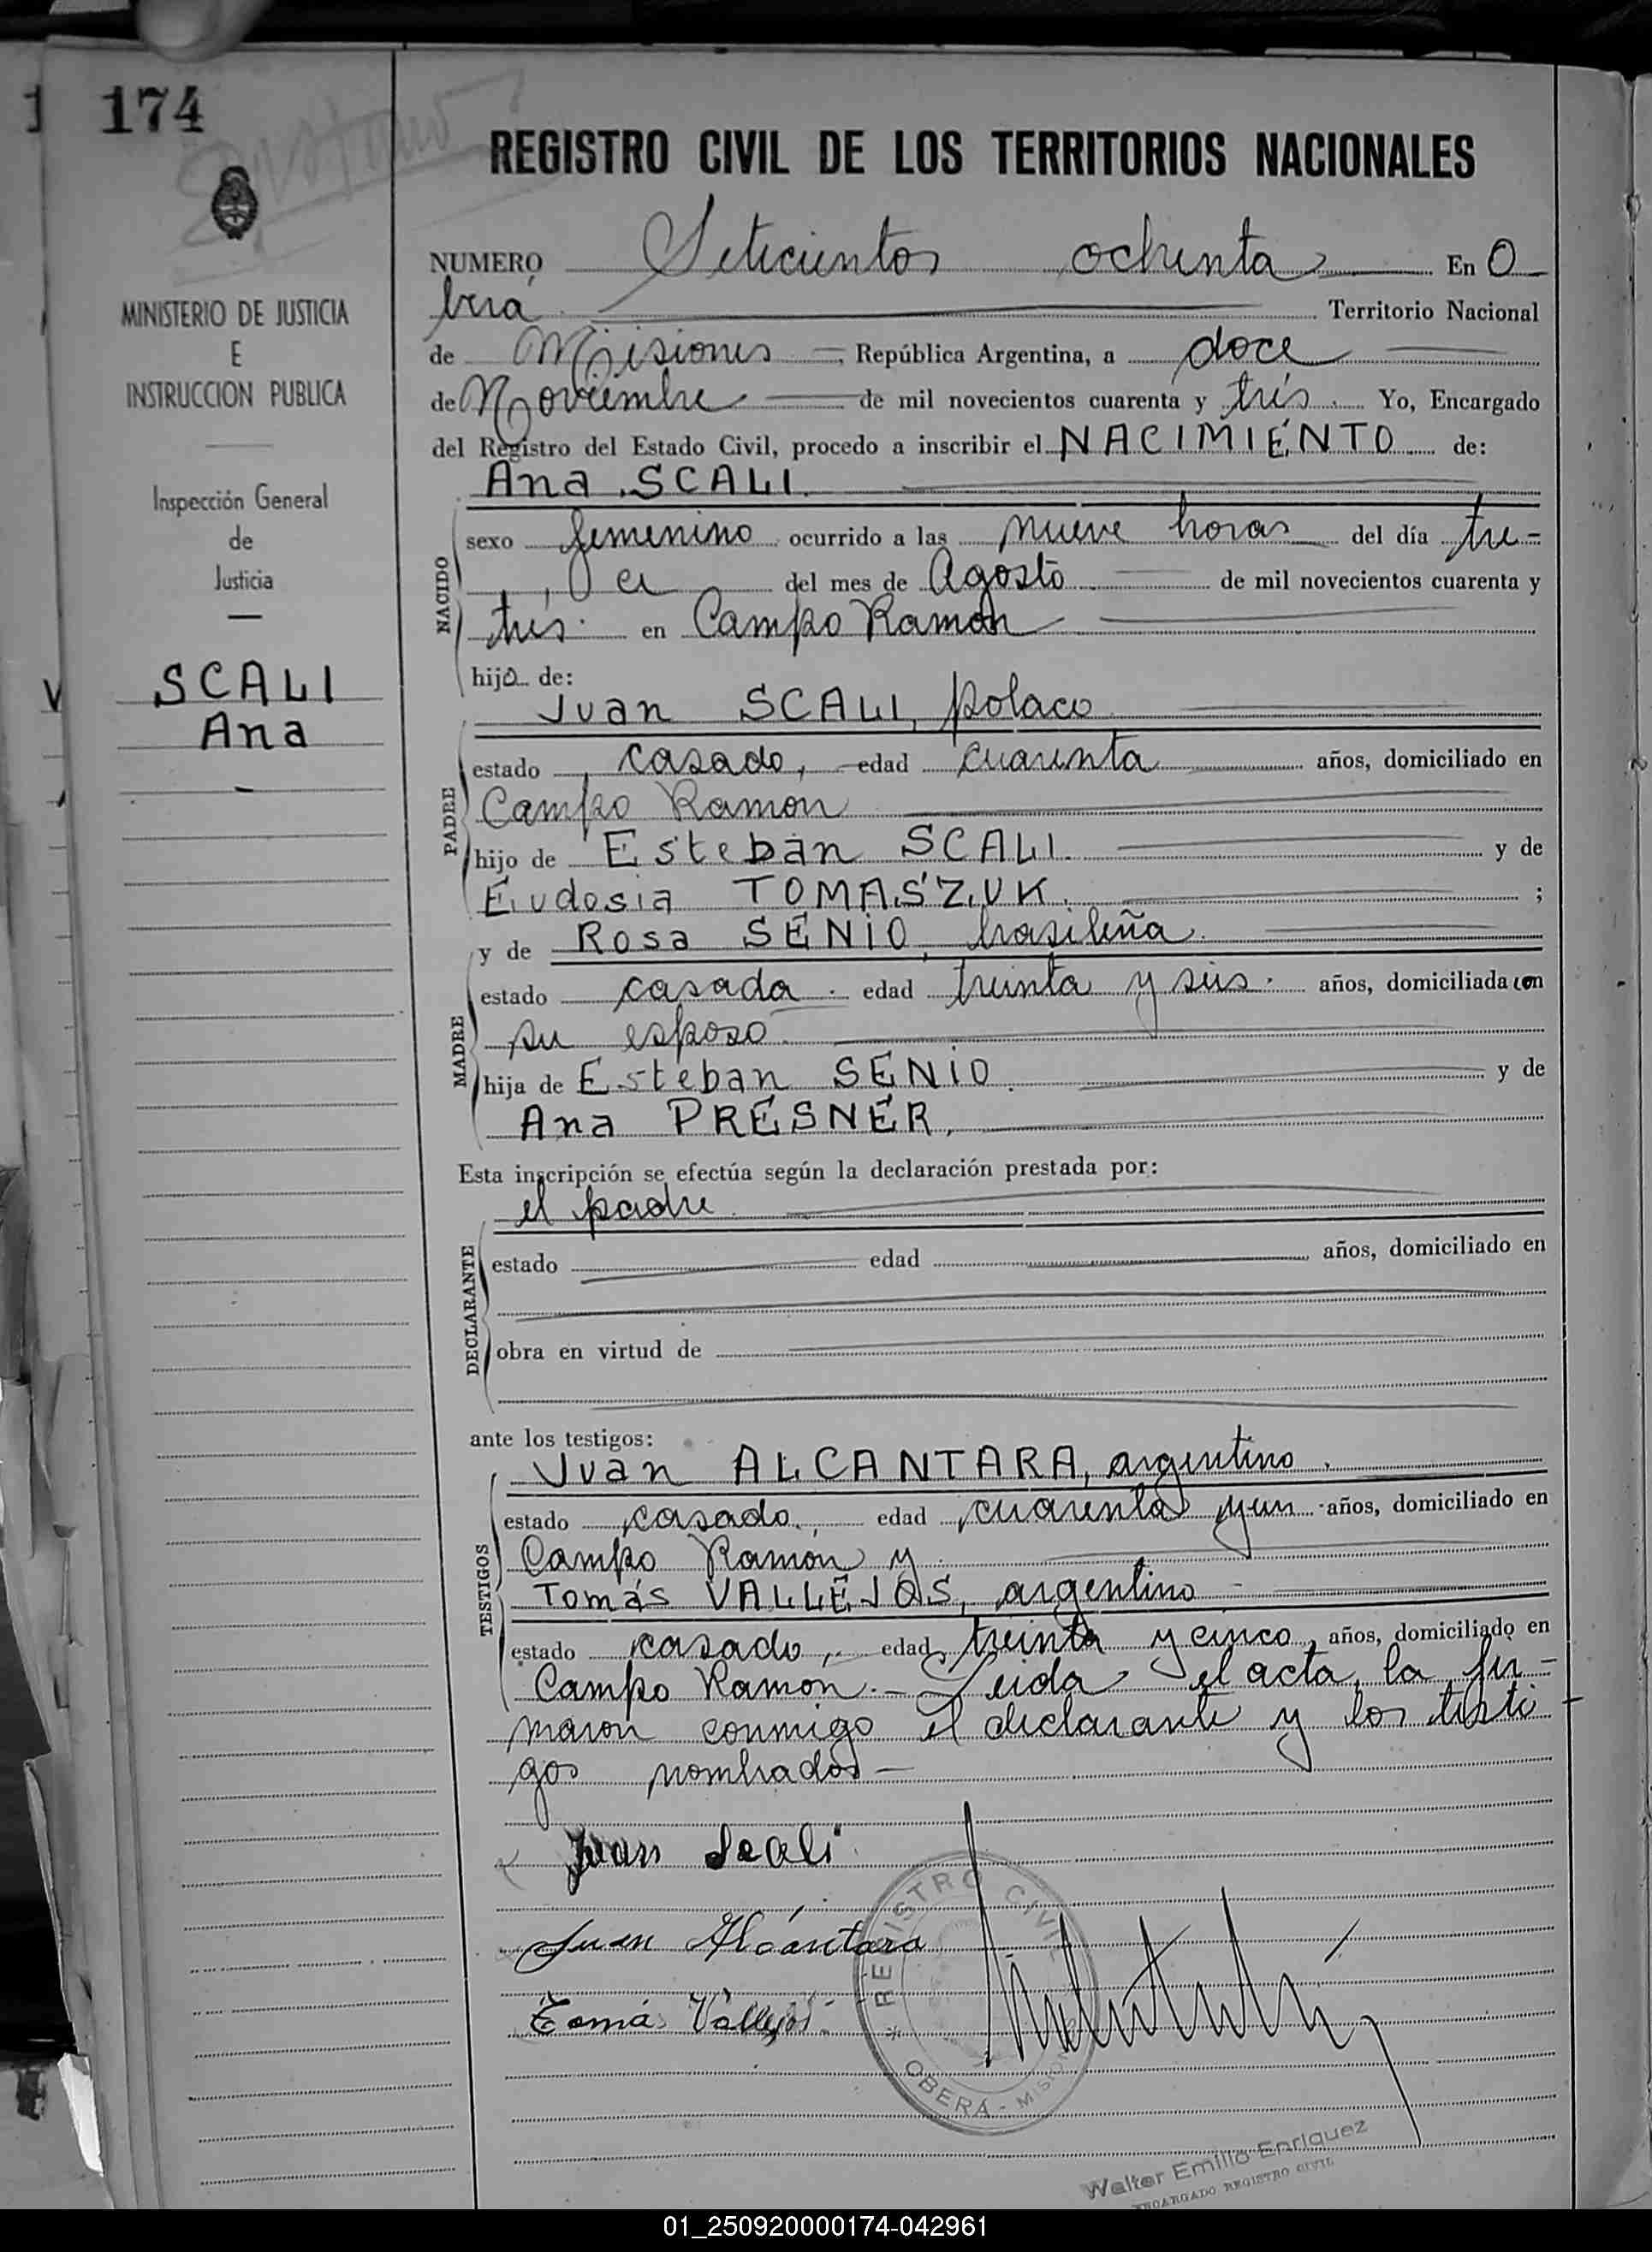 174
REGISTRO CIVIL DE LOS TERRITORIOS NACIONALES
MINISTERIO DE JUSTICIA
E
INSTRUCCION PUBLICA
Inspección General
de
Justicia
SCALI
Ana
NUMERO Setecientos ochenta En O
berá Territorio Nacional
de Misiones, República Argentina, a doce
de Noviembre de mil novecientos cuarenta y tres. Yo, Encargado
del Registro del Estado Civil, procedo a inscribir el NACIMIENTO de:
Ana SCALI.
NACIDO
sexo femenino ocurrido a las nueve horas del día tre-
ce del mes de Agosto de mil novecientos cuarenta y
tres. en Campo Ramón
hijo de:
Juan SCALI, polaco
PADRE
estado casado, edad cuarenta años, domiciliado en
Campo Ramon
hijo de Esteban SCALI. y de
Eudosia TOMASZUK. ;
y de Rosa SENIO, brasileña.
MADRE
estado casada. edad treinta y seis. años, domiciliada con
su esposo.
hija de Esteban SENIO. y de
Ana PRESNER,
Esta inscripción se efectúa según la declaración prestada por:
el padre
DECLARANTE
estado edad años, domiciliado en
obra en virtud de
ante los testigos:
Juan ALCANTARA, argentino.
TESTIGOS
estado casado, edad cuarenta y un años, domiciliado en
Campo Ramon y
Tomás VALLEJOS, argentino
estado casado, edad treinta y cinco, años, domiciliado en
Campo Ramon.- Leida el acta, la fir-
maron conmigo el declarante y los testi-
gos nombrados-
Juan Scali
Juan Alcántara
Tomás Vallejos.
REGISTRO CIVIL
OBERÁ - MISIONES
Walter Emilio Enriquez
ENCARGADO REGISTRO CIVIL
01_250920000174-042961